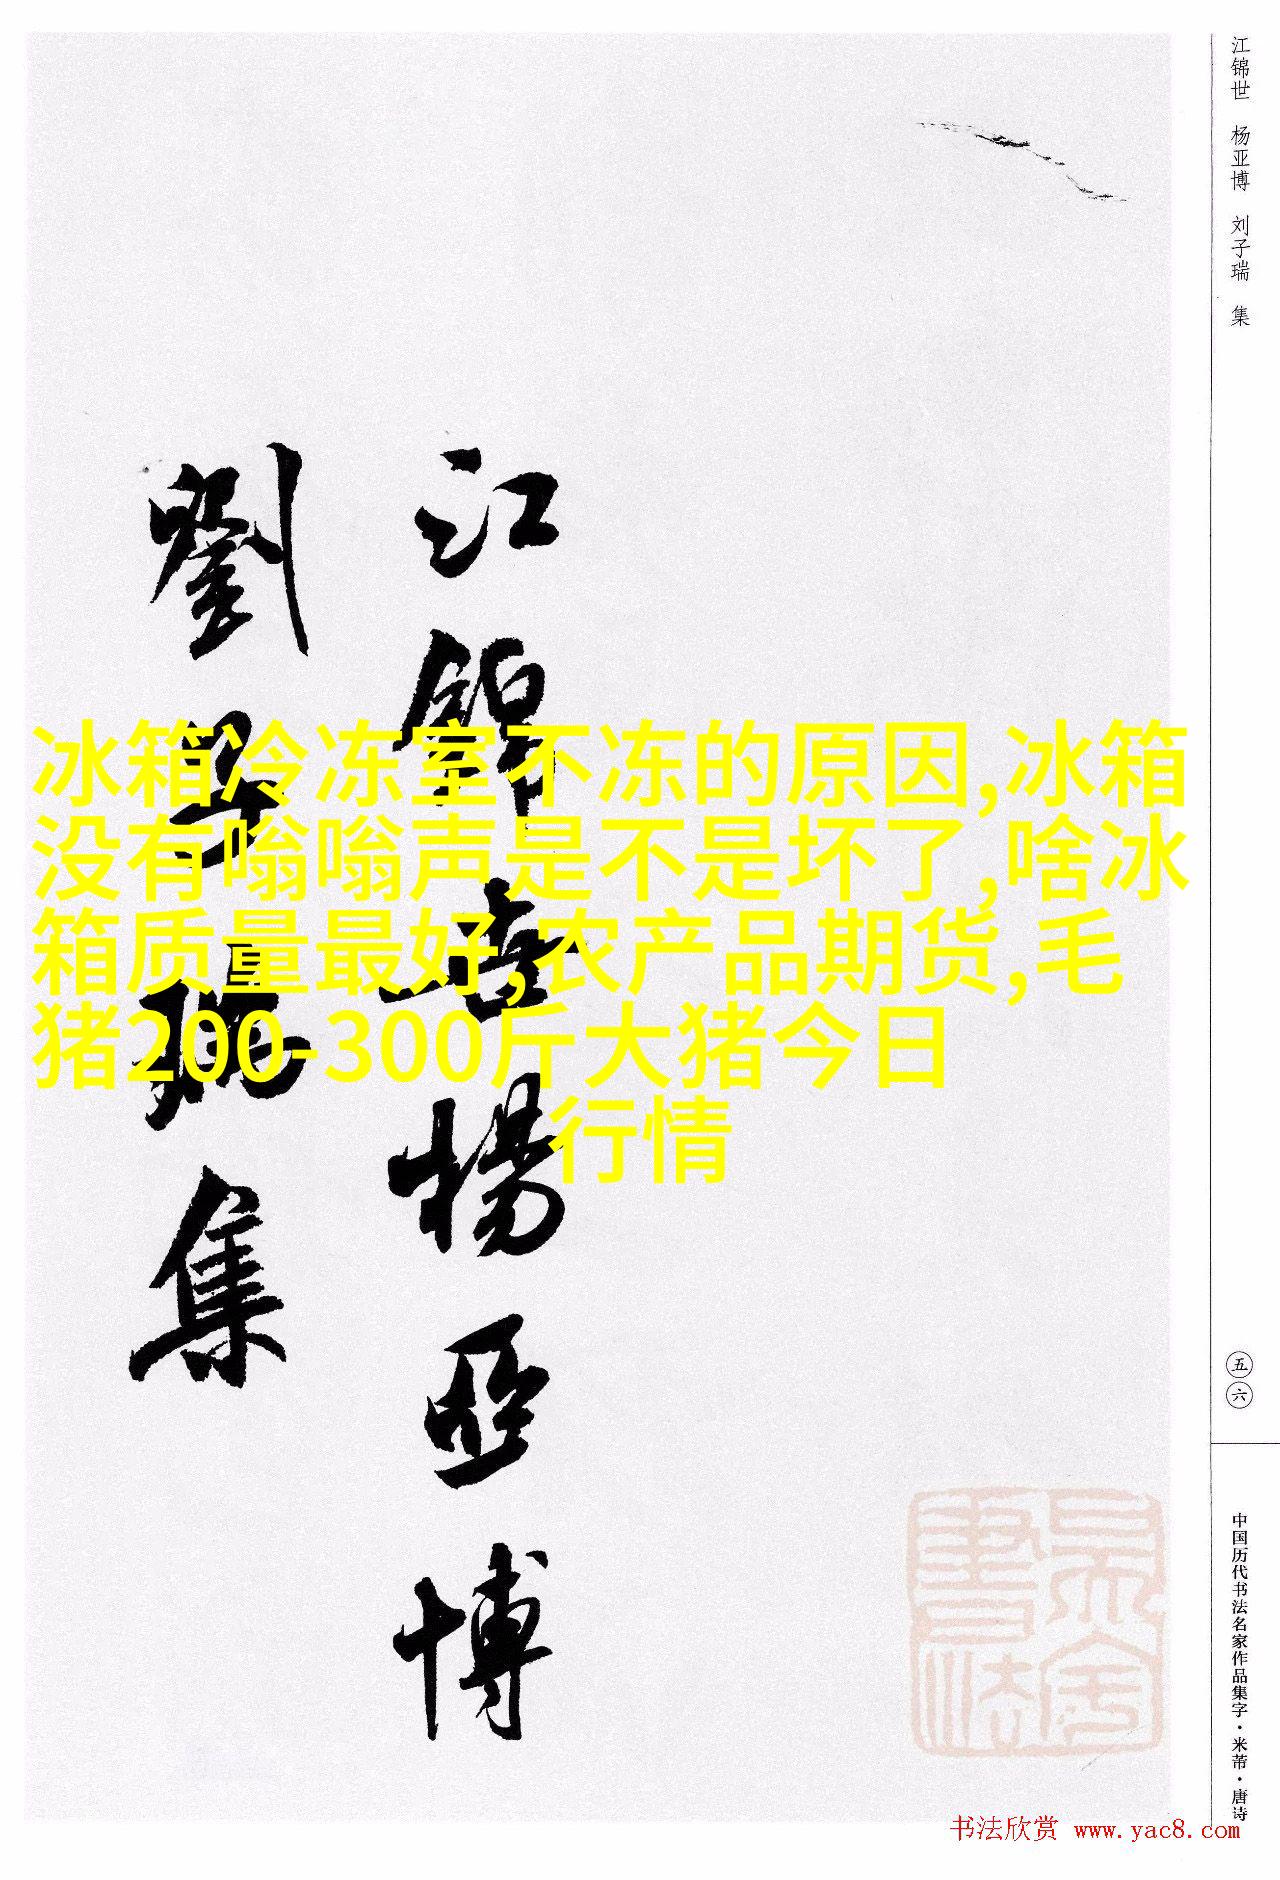 江锦世 杨亚博 刘子瑞 集
江錦世楊亞博
劉子瑞集
冰箱冷冻室不冻的原因,冰箱
没有嗡嗡声是不是坏了,啥冰
箱质量最好,农产品期货,毛
猪200-300斤大猪今日
行情
五六
中国历代书法名家作品集字·米芾·唐诗
书法欣赏 www.yac8.com